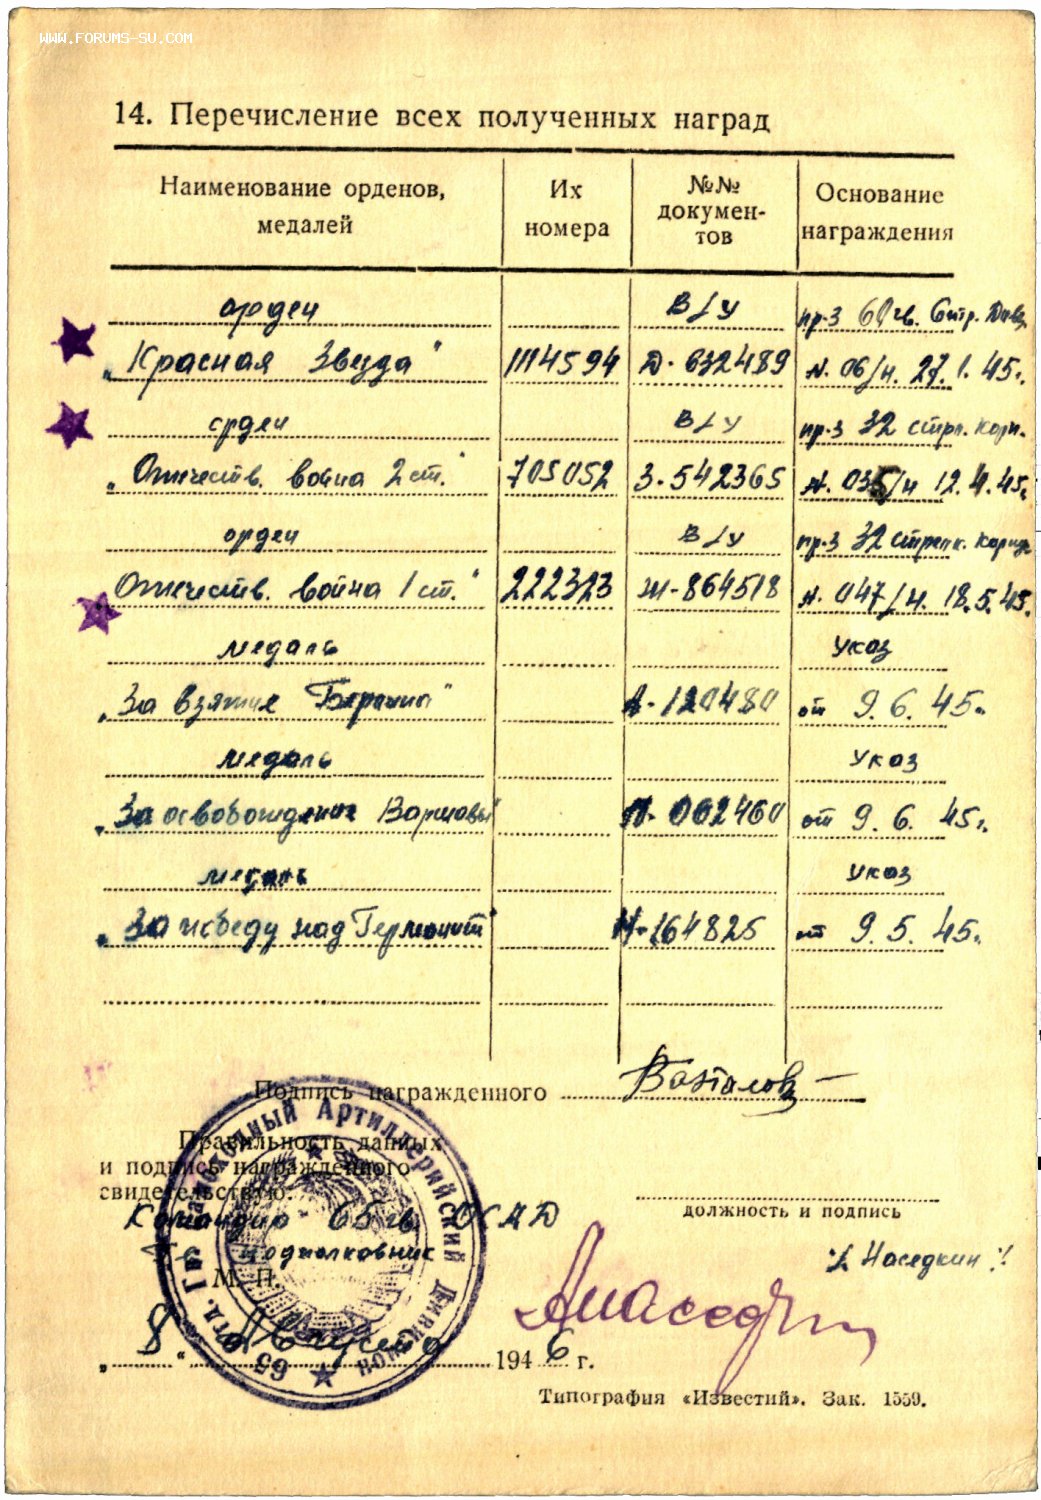 WWW.FORUMS-SU.COM
14. Перечисление всех полученных наград
Наименование орденов, медалей
Их номера
№№ докумен-тов
Основание награждения
орден В/У пр-з 60 гв. Стр. Див.
„Красная Звезда" 1114594 Д-632489 N. 06/н. 27.1.45г.
орден В/У пр-з 32 стрл. корп.
„Отечеств. война 2 ст." 705052 З-542365 N. 035/н 12.4.45г.
орден В/У пр-з 32 стрелк. корпус
„Отечеств. война 1 ст." 222323 Ж-864518 N. 047/н. 18.5.45г.
медаль Указ
„За взятие Берлина" А-120480 от 9.6.45г.
медаль Указ
„За освобождение Варшавы" 062460 от 9.6.45г.
медаль Указ
„За победу над Германией" 164825 от 9.5.45г.
Подпись награжденного
Правильность данных
и подпись награжденного
свидетельствую:
Командир 65 гв. ОСАД
подполковник
должность и подпись
/Наседкин/
М. П.
„8" Августа 1946 г.
65 отд. Гв. Самоходный Артиллерийский Дивизион
Типография «Известий». Зак. 1559.